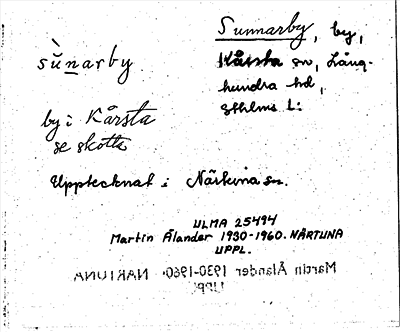 sùnarby
by i Kårsta
se skotte
Sunnarby, by,
Kårsta sn, Lång-
hundra hd,
Sthlms l:
Upptecknat i Närtuna sn.
ULMA 25494
Martin Ålander 1930-1960. NÄRTUNA
UPPL.
Martin Ålander 1930-1960. NÄRTUNA
UPPL.